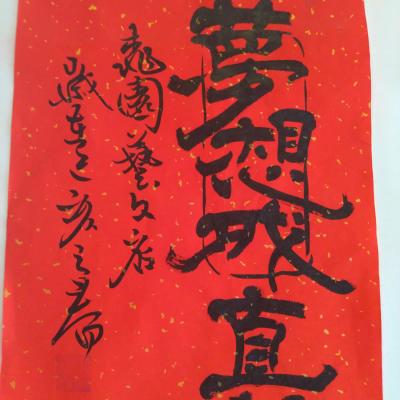 夢想成真
園藝文店
歲在己亥之春